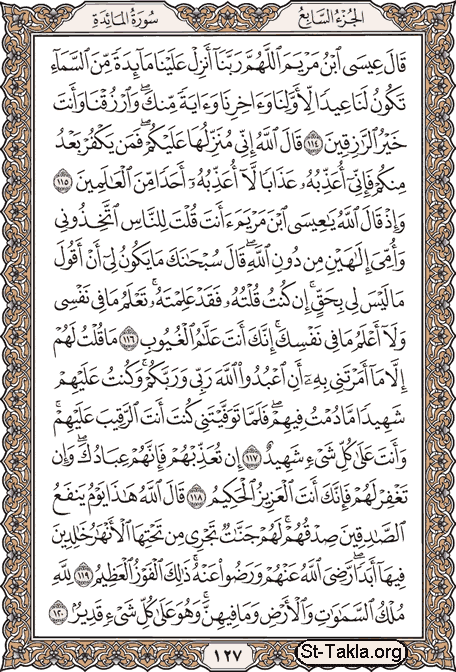 الجزء السابع سورة المائدة
قَالَ عِيسَى ٱبْنُ مَرْيَمَ ٱللَّهُمَّ رَبَّنَآ أَنزِلْ عَلَيْنَا مَآئِدَةً مِّنَ ٱلسَّمَآءِ
تَكُونُ لَنَا عِيدًا لِّأَوَّلِنَا وَءَاخِرِنَا وَءَايَةً مِّنكَ ۖ وَٱرْزُقْنَا وَأَنتَ
خَيْرُ ٱلرَّٰزِقِينَ ١١٤ قَالَ ٱللَّهُ إِنِّى مُنَزِّلُهَا عَلَيْكُمْ ۖ فَمَن يَكْفُرْ بَعْدُ
مِنكُمْ فَإِنِّىٓ أُعَذِّبُهُۥ عَذَابًا لَّآ أُعَذِّبُهُۥٓ أَحَدًا مِّنَ ٱلْعَٰلَمِينَ ١١٥
وَإِذْ قَالَ ٱللَّهُ يَٰعِيسَى ٱبْنَ مَرْيَمَ ءَأَنتَ قُلْتَ لِلنَّاسِ ٱتَّخِذُونِى
وَأُمِّىَ إِلَٰهَيْنِ مِن دُونِ ٱللَّهِ ۖ قَالَ سُبْحَٰنَكَ مَا يَكُونُ لِىٓ أَنْ أَقُولَ
مَا لَيْسَ لِى بِحَقٍّ ۚ إِن كُنتُ قُلْتُهُۥ فَقَدْ عَلِمْتَهُۥ ۚ تَعْلَمُ مَا فِى نَفْسِى
وَلَآ أَعْلَمُ مَا فِى نَفْسِكَ ۚ إِنَّكَ أَنتَ عَلَّٰمُ ٱلْغُيُوبِ ١١٦ مَا قُلْتُ لَهُمْ
إِلَّا مَآ أَمَرْتَنِى بِهِۦٓ أَنِ ٱعْبُدُوا۟ ٱللَّهَ رَبِّى وَرَبَّكُمْ ۚ وَكُنتُ عَلَيْهِمْ
شَهِيدًا مَّا دُمْتُ فِيهِمْ ۖ فَلَمَّا تَوَفَّيْتَنِى كُنتَ أَنتَ ٱلرَّقِيبَ عَلَيْهِمْ ۚ
وَأَنتَ عَلَىٰ كُلِّ شَىْءٍ شَهِيدٌ ١١٧ إِن تُعَذِّبْهُمْ فَإِنَّهُمْ عِبَادُكَ ۖ وَإِن
تَغْفِرْ لَهُمْ فَإِنَّكَ أَنتَ ٱلْعَزِيزُ ٱلْحَكِيمُ ١١٨ قَالَ ٱللَّهُ هَٰذَا يَوْمُ يَنفَعُ
ٱلصَّٰدِقِينَ صِدْقُهُمْ ۚ لَهُمْ جَنَّٰتٌ تَجْرِى مِن تَحْتِهَا ٱلْأَنْهَٰرُ خَٰلِدِينَ
فِيهَآ أَبَدًا ۚ رَّضِىَ ٱللَّهُ عَنْهُمْ وَرَضُوا۟ عَنْهُ ۚ ذَٰلِكَ ٱلْفَوْزُ ٱلْعَظِيمُ ١١٩ لِلَّهِ
مُلْكُ ٱلسَّمَٰوَٰتِ وَٱلْأَرْضِ وَمَا فِيهِنَّ ۚ وَهُوَ عَلَىٰ كُلِّ شَىْءٍ قَدِيرٌۢ ١٢٠
١٢٧
St-Takla.org